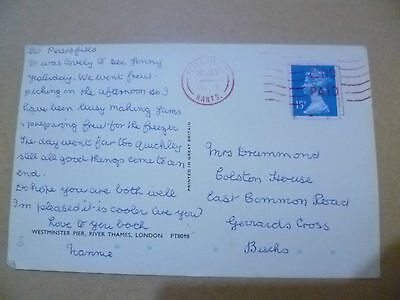 Petersfield
It was lovely to see Jonny
Holliday. We went fruit-
picking in the afternoon so I
have been busy making Jams
& preparing fruit for the freezer
The day went far too quickly
still all good things come to an
end.
Do hope you are both well
I'm pleased it is cooler are you?
Love to you both
Nannie
WESTMINSTER PIER, RIVER THAMES, LONDON PT8098
PRINTED IN GREAT BRITAIN
HANTS.
PAID
15
Mrs Drummond
Colston House
East Common Road
Gerrards Cross
Bucks